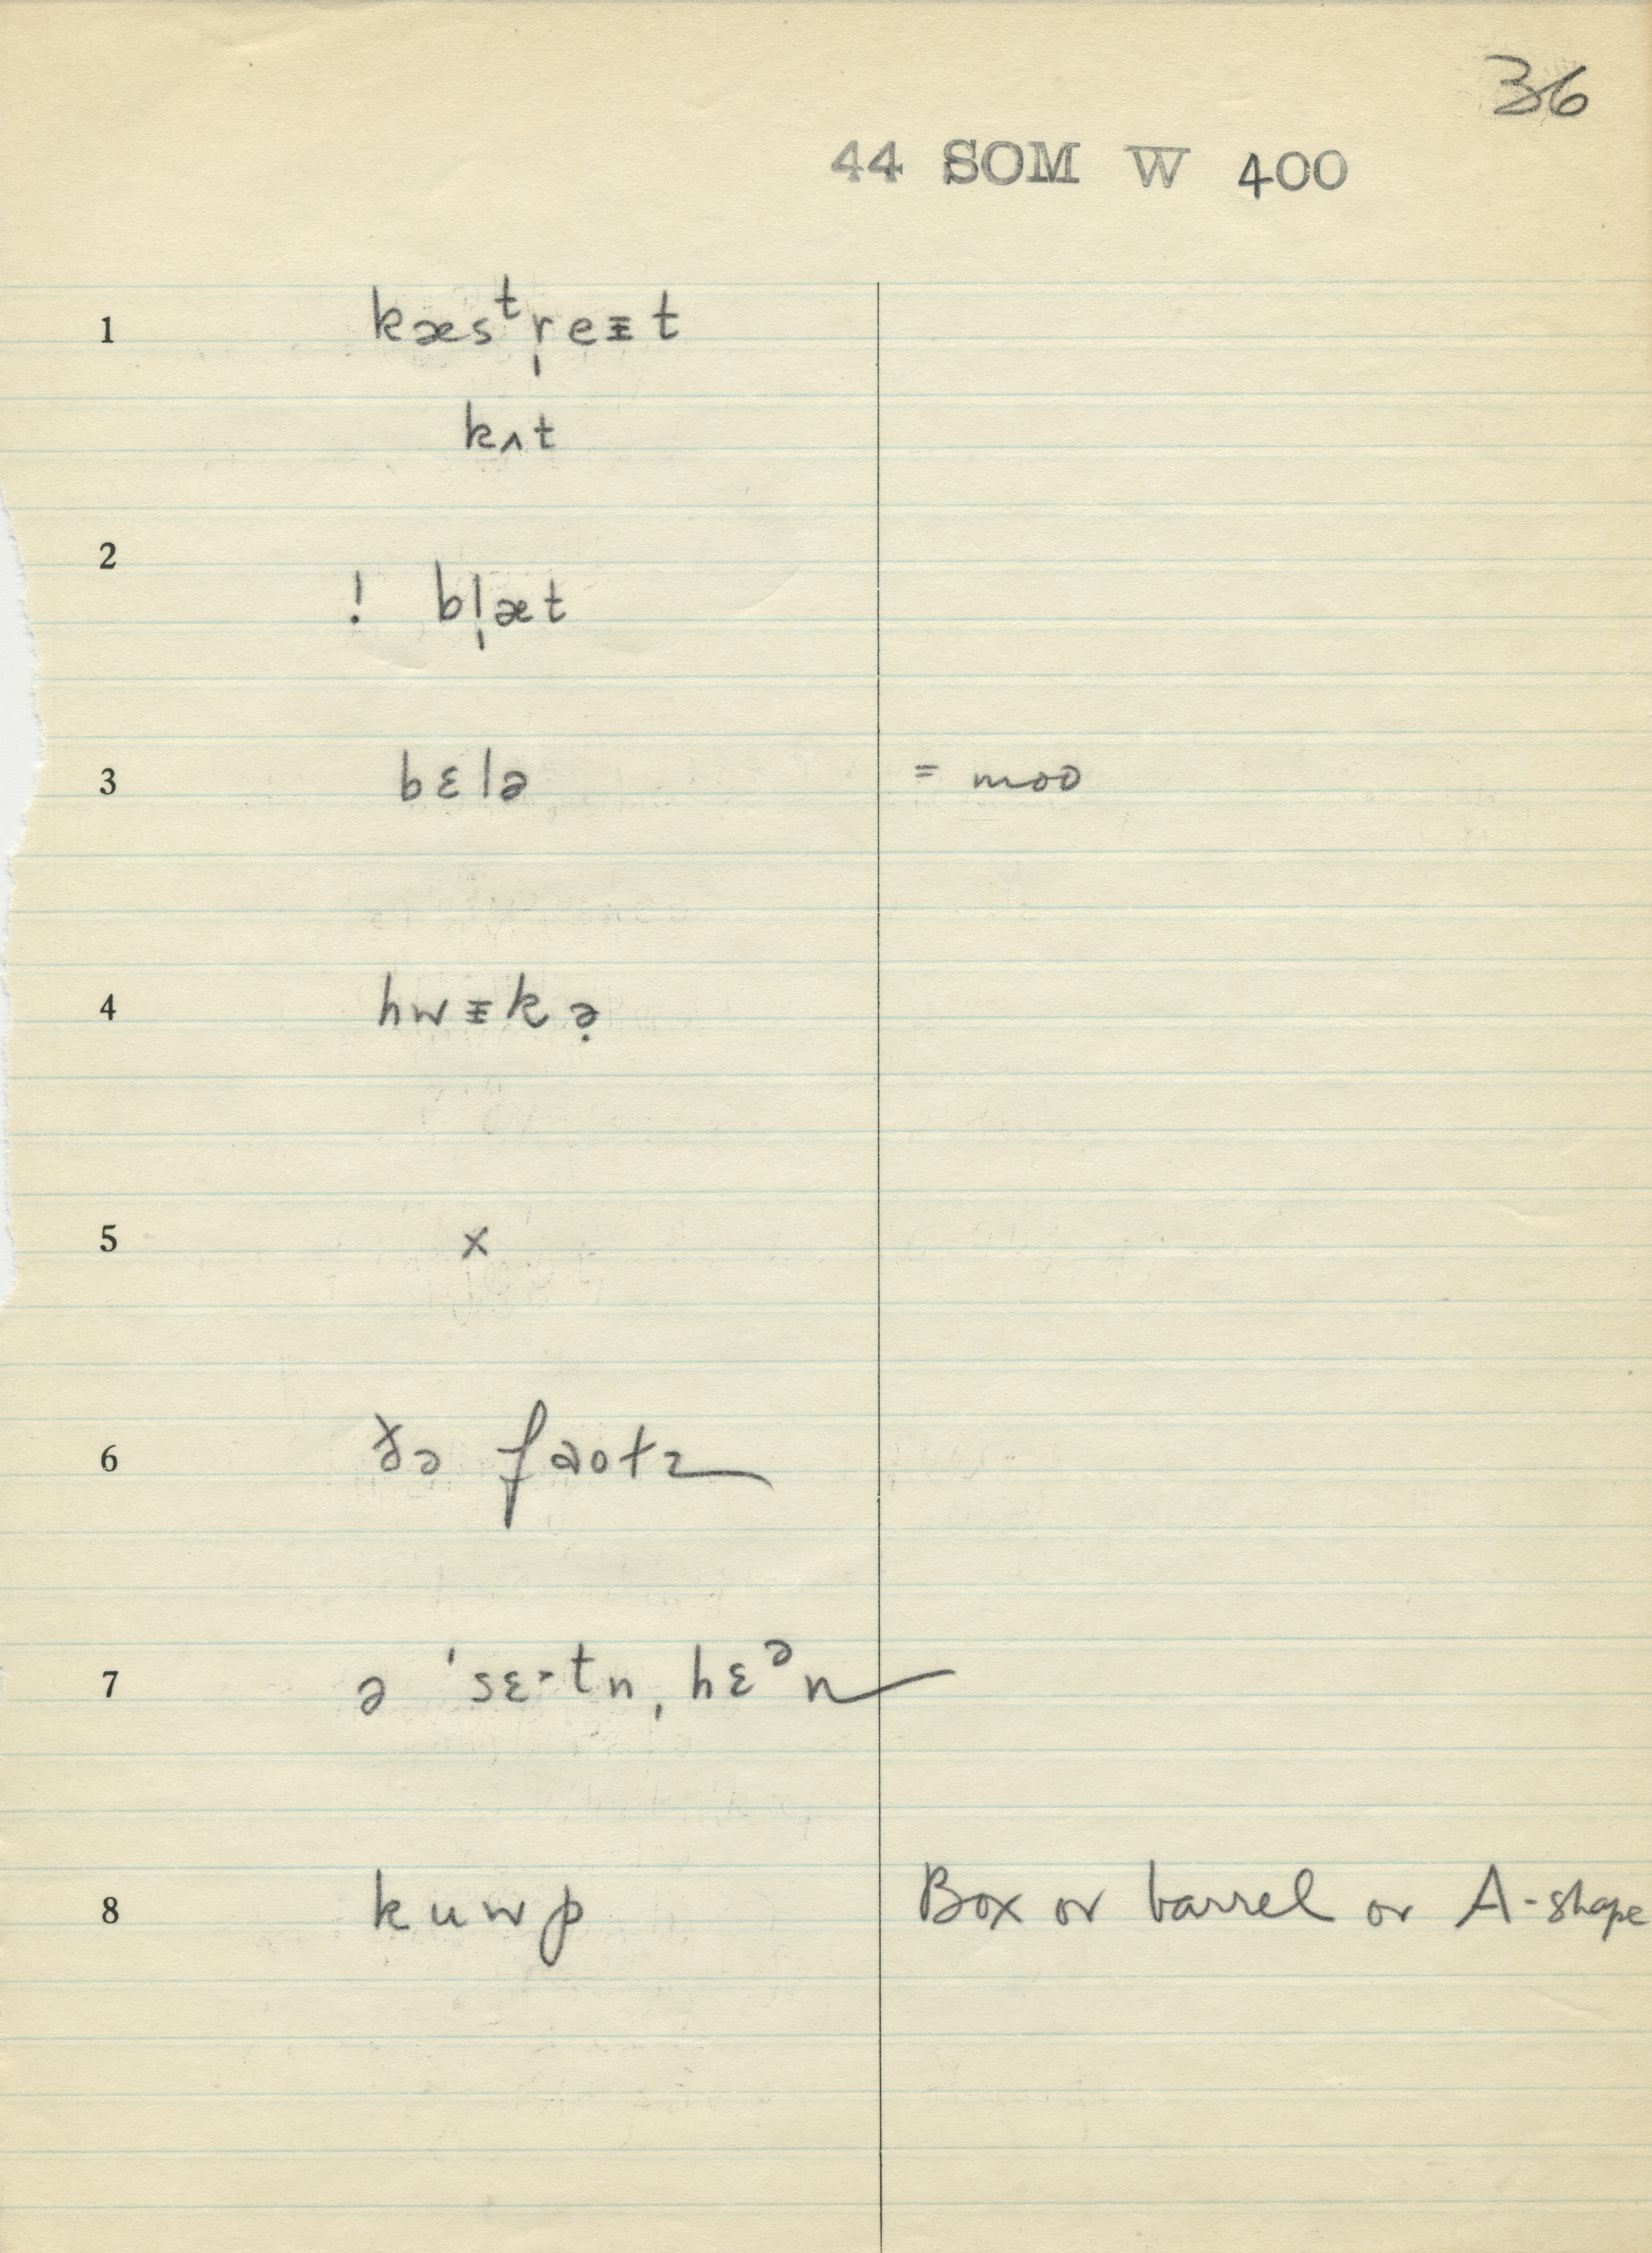 36
44 SOM W 400
1 kæsᵗr̩eᵻt
kʌt
2
! bl̩æt
3 bɛlə = moo
4 hwᵻkə̣
5 x
6 ðə faotz
7 ə ˈsɛ·tn̩ hɛᵊn
8 kuwp Box or barrel or A-shape